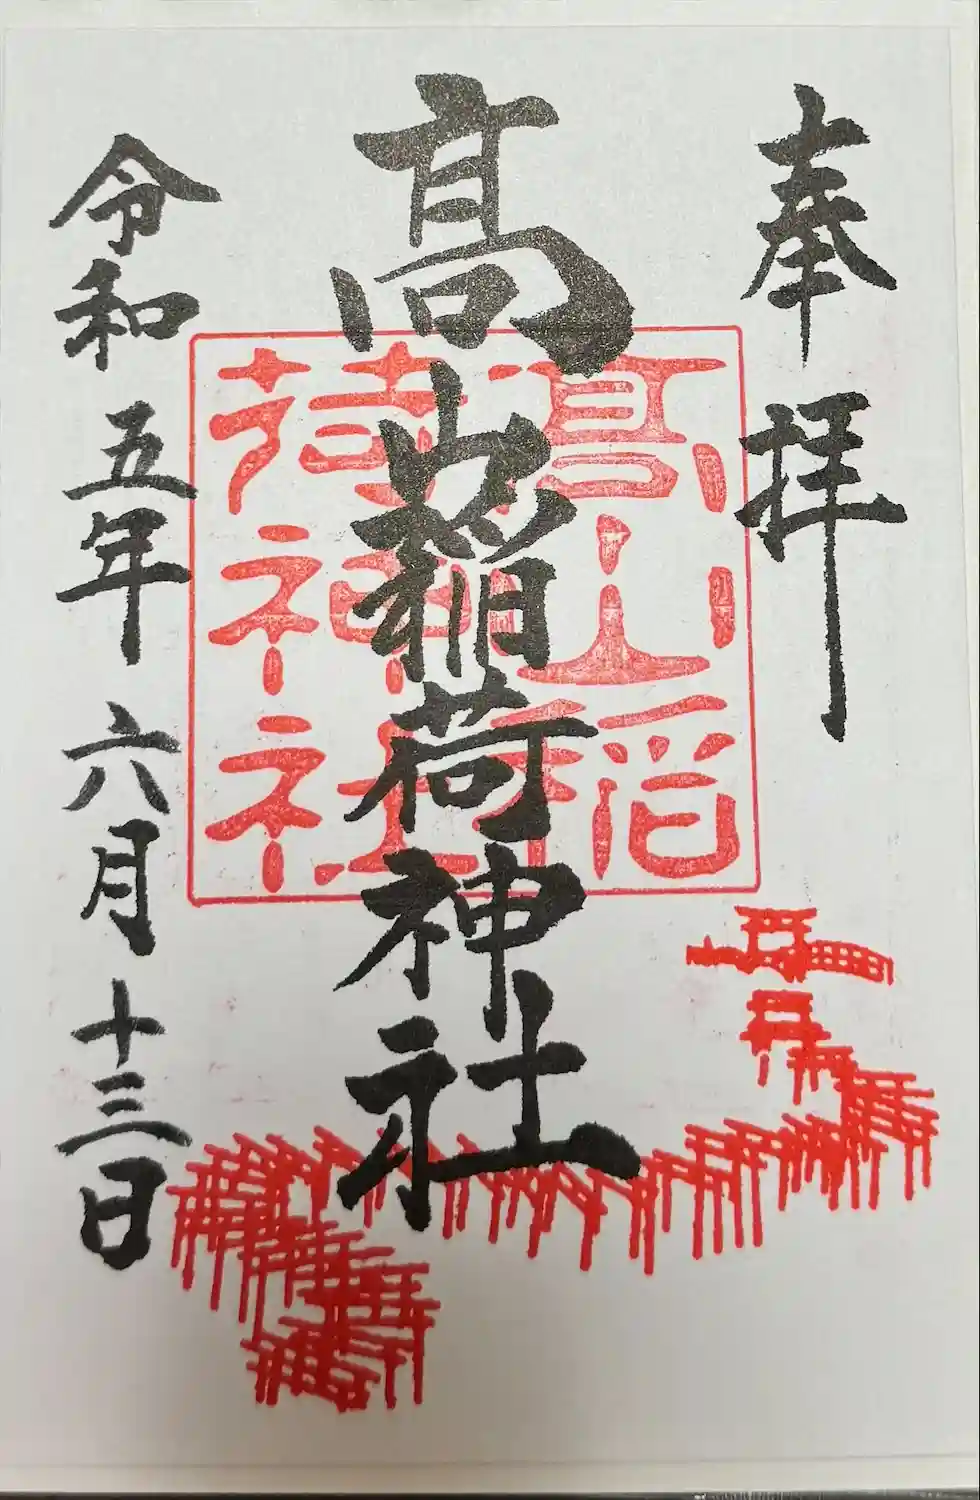 奉拝
髙山稲荷神社
髙山稲
荷神社
令和五年六月十三日